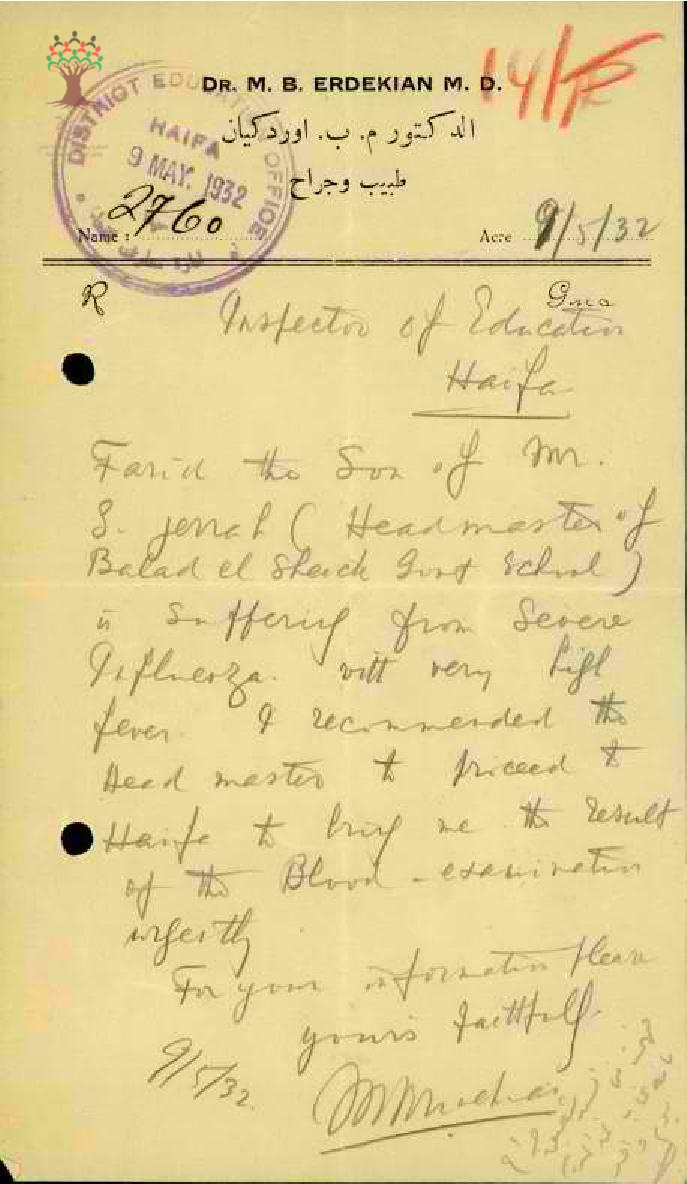 DR. M. B. ERDEKIAN M. D.
الدكتور م. ب. اوردكيان
طبيب وجراح
DISTRICT EDUCATION OFFICE
HAIFA
9 MAY. 1932
Name : 2760
Acre 9/5/32
14/5
R
Inspector of Education
Haifa
Farid the Son of Mr.
S. Jerrah (Headmaster of
Balad el Sheick Govt School)
is Suffering from Severe
Influenza. witt very high
fever. I recommended the
Head master to proceed to
Haifa to bring me the result
of the Blood-examination
urgently
For your information please
yours faithfully
9/5/32